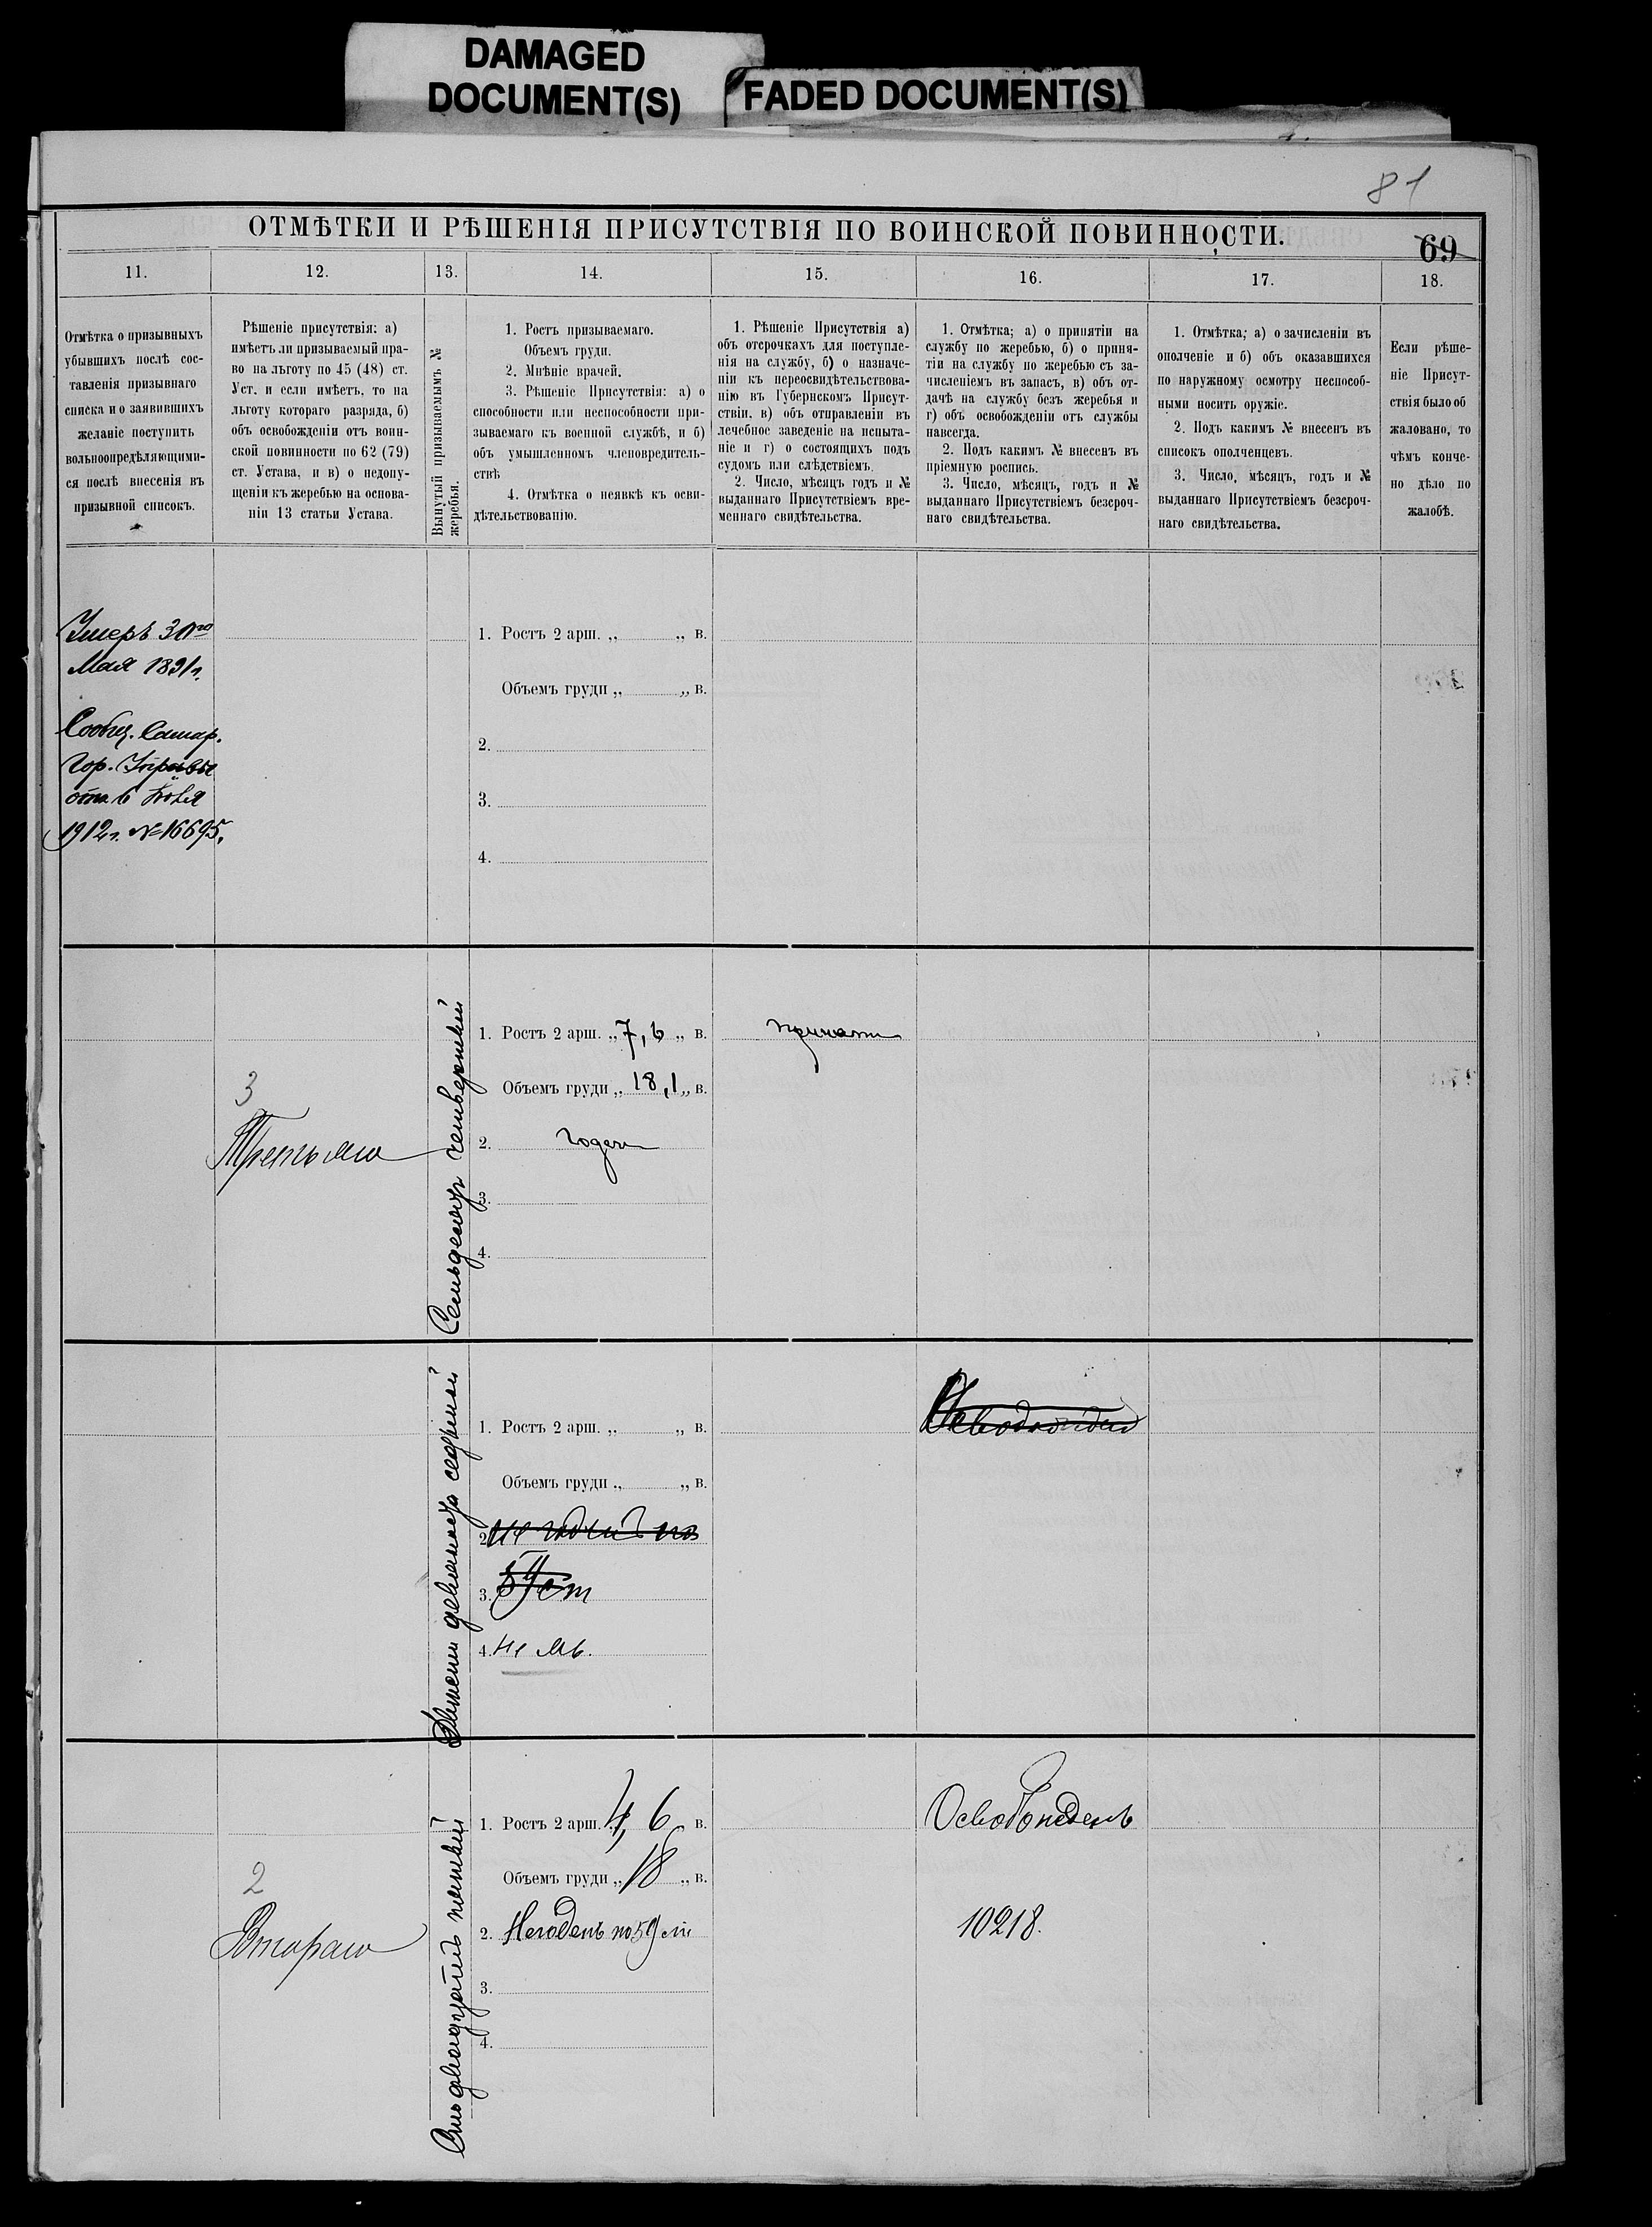 DAMAGED
DOCUMENT(S)
FADED DOCUMENT(S)
81
ОТМѢТКИ И РѢШЕНІЯ ПРИСУТСТВІЯ ПО ВОИНСКОЙ ПОВИННОСТИ.
69
11.
12.
13.
14.
15.
16.
17.
18.
Отмѣтка о призывныхъ
убывшихъ послѣ сос-
тавленія призывнаго
списка и о заявившихъ
желаніе поступить
вольноопредѣляющими-
ся послѣ внесенія въ
призывной списокъ.
Рѣшеніе присутствія: а)
имѣетъ ли призываемый пра-
во на льготу по 45 (48) ст.
Уст. и если имѣетъ, то на
льготу котораго разряда, б)
объ освобожденіи отъ воин-
ской повинности по 62 (79)
ст. Устава, и в) о недопу-
щеніи къ жеребью на основа-
ніи 13 статьи Устава.
Вынутый призываемымъ №
жеребья.
1. Ростъ призываемаго.
Объемъ груди.
2. Мнѣніе врачей.
3. Рѣшеніе Присутствія: а) о
способности или неспособности при-
зываемаго къ военной службѣ, и б)
объ умышленномъ членовредитель-
ствѣ
4. Отмѣтка о неявкѣ къ осви-
дѣтельствованію.
1. Рѣшеніе Присутствія а)
объ отсрочкахъ для поступле-
нія на службу, б) о назначе-
ніи къ переосвидѣтельствова-
нію въ Губернскомъ Присут-
ствіи, в) объ отправленіи въ
лечебное заведеніе на испыта-
ніе и г) о состоящихъ подъ
судомъ или слѣдствіемъ.
2. Число, мѣсяцъ годъ и №
выданнаго Присутствіемъ вре-
меннаго свидѣтельства.
1. Отмѣтка; а) о принятіи на
службу по жеребью, б) о приня-
тіи на службу по жеребью съ за-
численіемъ въ запасъ, в) объ от-
дачѣ на службу безъ жеребья и
г) объ освобожденіи отъ службы
навсегда.
2. Подъ какимъ № внесенъ въ
пріемную роспись.
3. Число, мѣсяцъ, годъ и №
выданнаго Присутствіемъ безсроч-
наго свидѣтельства.
1. Отмѣтка; а) о зачисленіи въ
ополченіе и б) объ оказавшихся
по наружному осмотру неспособ-
ными носить оружіе.
2. Подъ какимъ № внесенъ въ
списокъ ополченцевъ.
3. Число, мѣсяцъ, годъ и №
выданнаго Присутствіемъ безсроч-
наго свидѣтельства.
Если рѣше-
ніе Присут-
ствія было об
жаловано, то
чѣмъ конче-
но дѣло по
жалобѣ.
Умеръ 30го
Мая 1891г.
Сообщ. Самар.
Гор. Управы
отъ 6
1912г. №16695.
1. Ростъ 2 арш. „ „ в.
Объемъ груди „ „ в.
2.
3.
4.
3
Третьяго
Семьдесятъ четвертый
1. Ростъ 2 арш. „ 7,6 „ в.
Объемъ груди „ 18,1 „ в.
2. Годенъ
3.
4.
принятъ
Двѣсти девяносто седьмой
1. Ростъ 2 арш. „ „ в.
Объемъ груди „ „ в.
2. не годный по
3. 59 ст
4. не яв.
Освобожденъ
2
Втораго
Сто двадцать пятый
1. Ростъ 2 арш. 4,6 в.
Объемъ груди „ 18 „ в.
2. Негоденъ по 59 лит
3.
4.
Освобожденъ
10218.